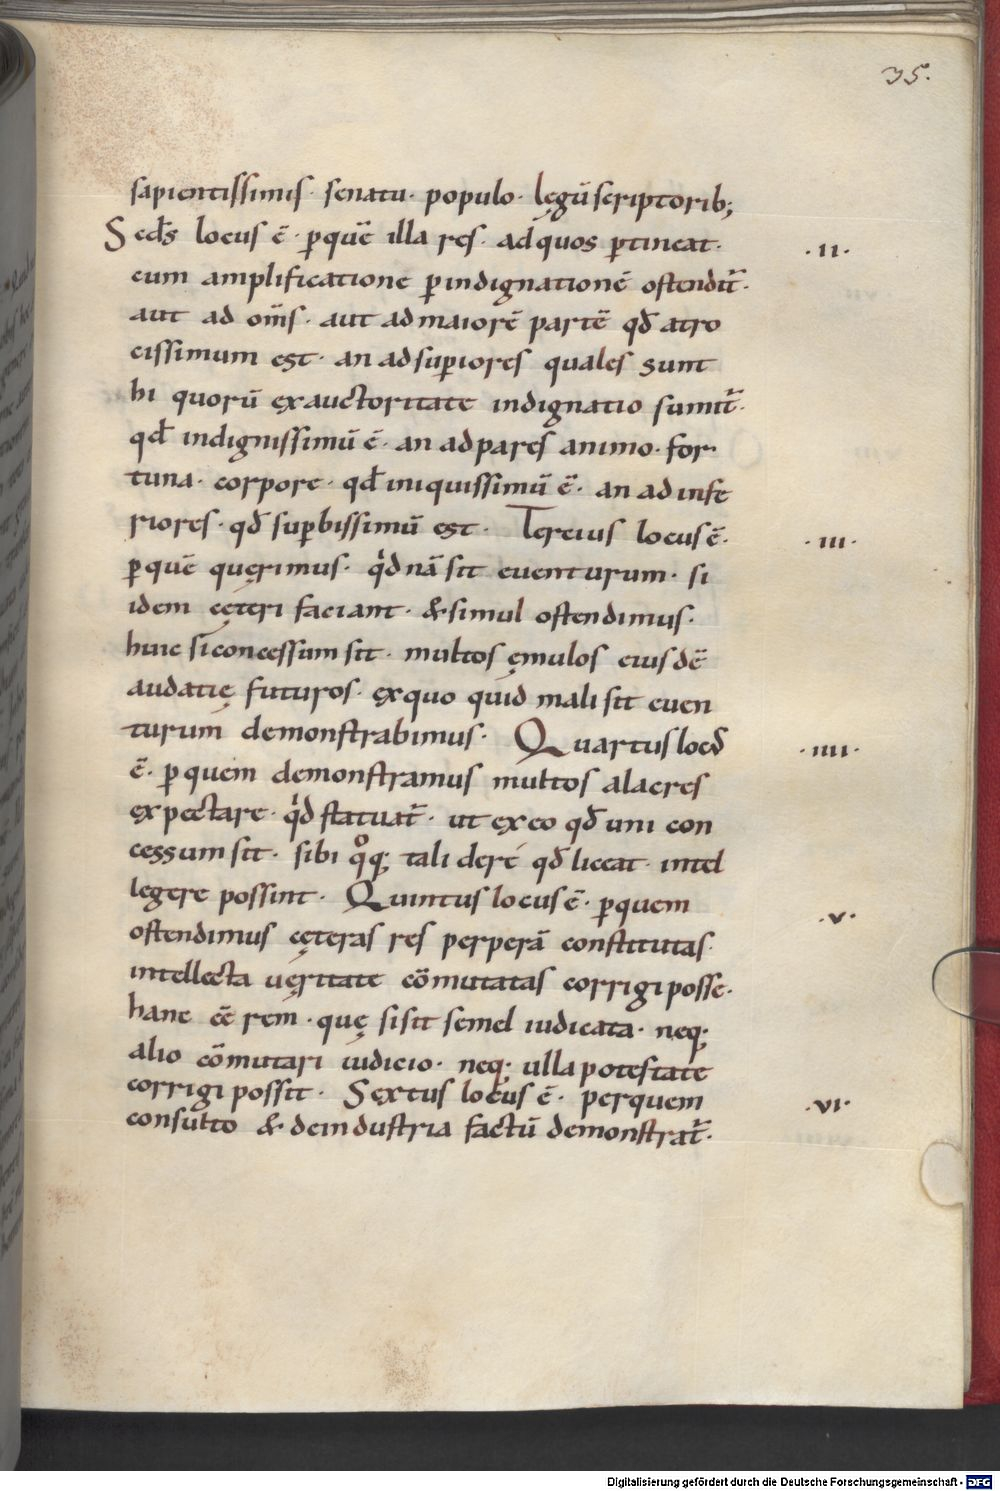 35.
sapientissimis· senatu· populo· legū scriptorib;
Scds locus ē· p quē illa res· ad quos ptineat· ·II·
cum amplificatione p indignationē ostendit̄·
aut ad om̄s· aut ad maiorē partē qd̄ atro
cissimum est· an ad supiores quales sunt
hi quorū ęx auctoritate indignatio sumit̄·
qd̄ indignissimū ē· an ad pares animo· for·
tuna· corpore· qd̄ iniquissimū ē· an ad infe
riores· qd̄ supbissimū est· Tercius locus ē· ·III·
p quē quęrimus· qd nā sit euenturum· si
idem cęteri faciant· & simul ostendimus·
huic si concessum sit· multos ęmulos eiusdē
audatię futuros· ęx quo quid mali sit euen
turum demonstrabimus· Quartus loc̄ ·IIII·
ē· p quem demonstramus multos alacres
ęxpectare· qd statuat̄· ut ęx eo qd̄ uni con
cessum sit· sibi qoq; tali de re qd̄ liceat· intel
legere possint· Quintus locus ē· p quem ·V·
ostendimus cęteras res perperā constitutas·
intellecta uęritate cōmutatas corrigi posse·
hanc eē rem· quę si sit semel iudicata· neq;
alio cōmutari iudicio· neq; ulla potestate
corrigi possit· Sęxtus locus ē· per quem ·VI·
consulto & de industria factū demonstrat̄·
Digitalisierung gefördert durch die Deutsche Forschungsgemeinschaft - DFG